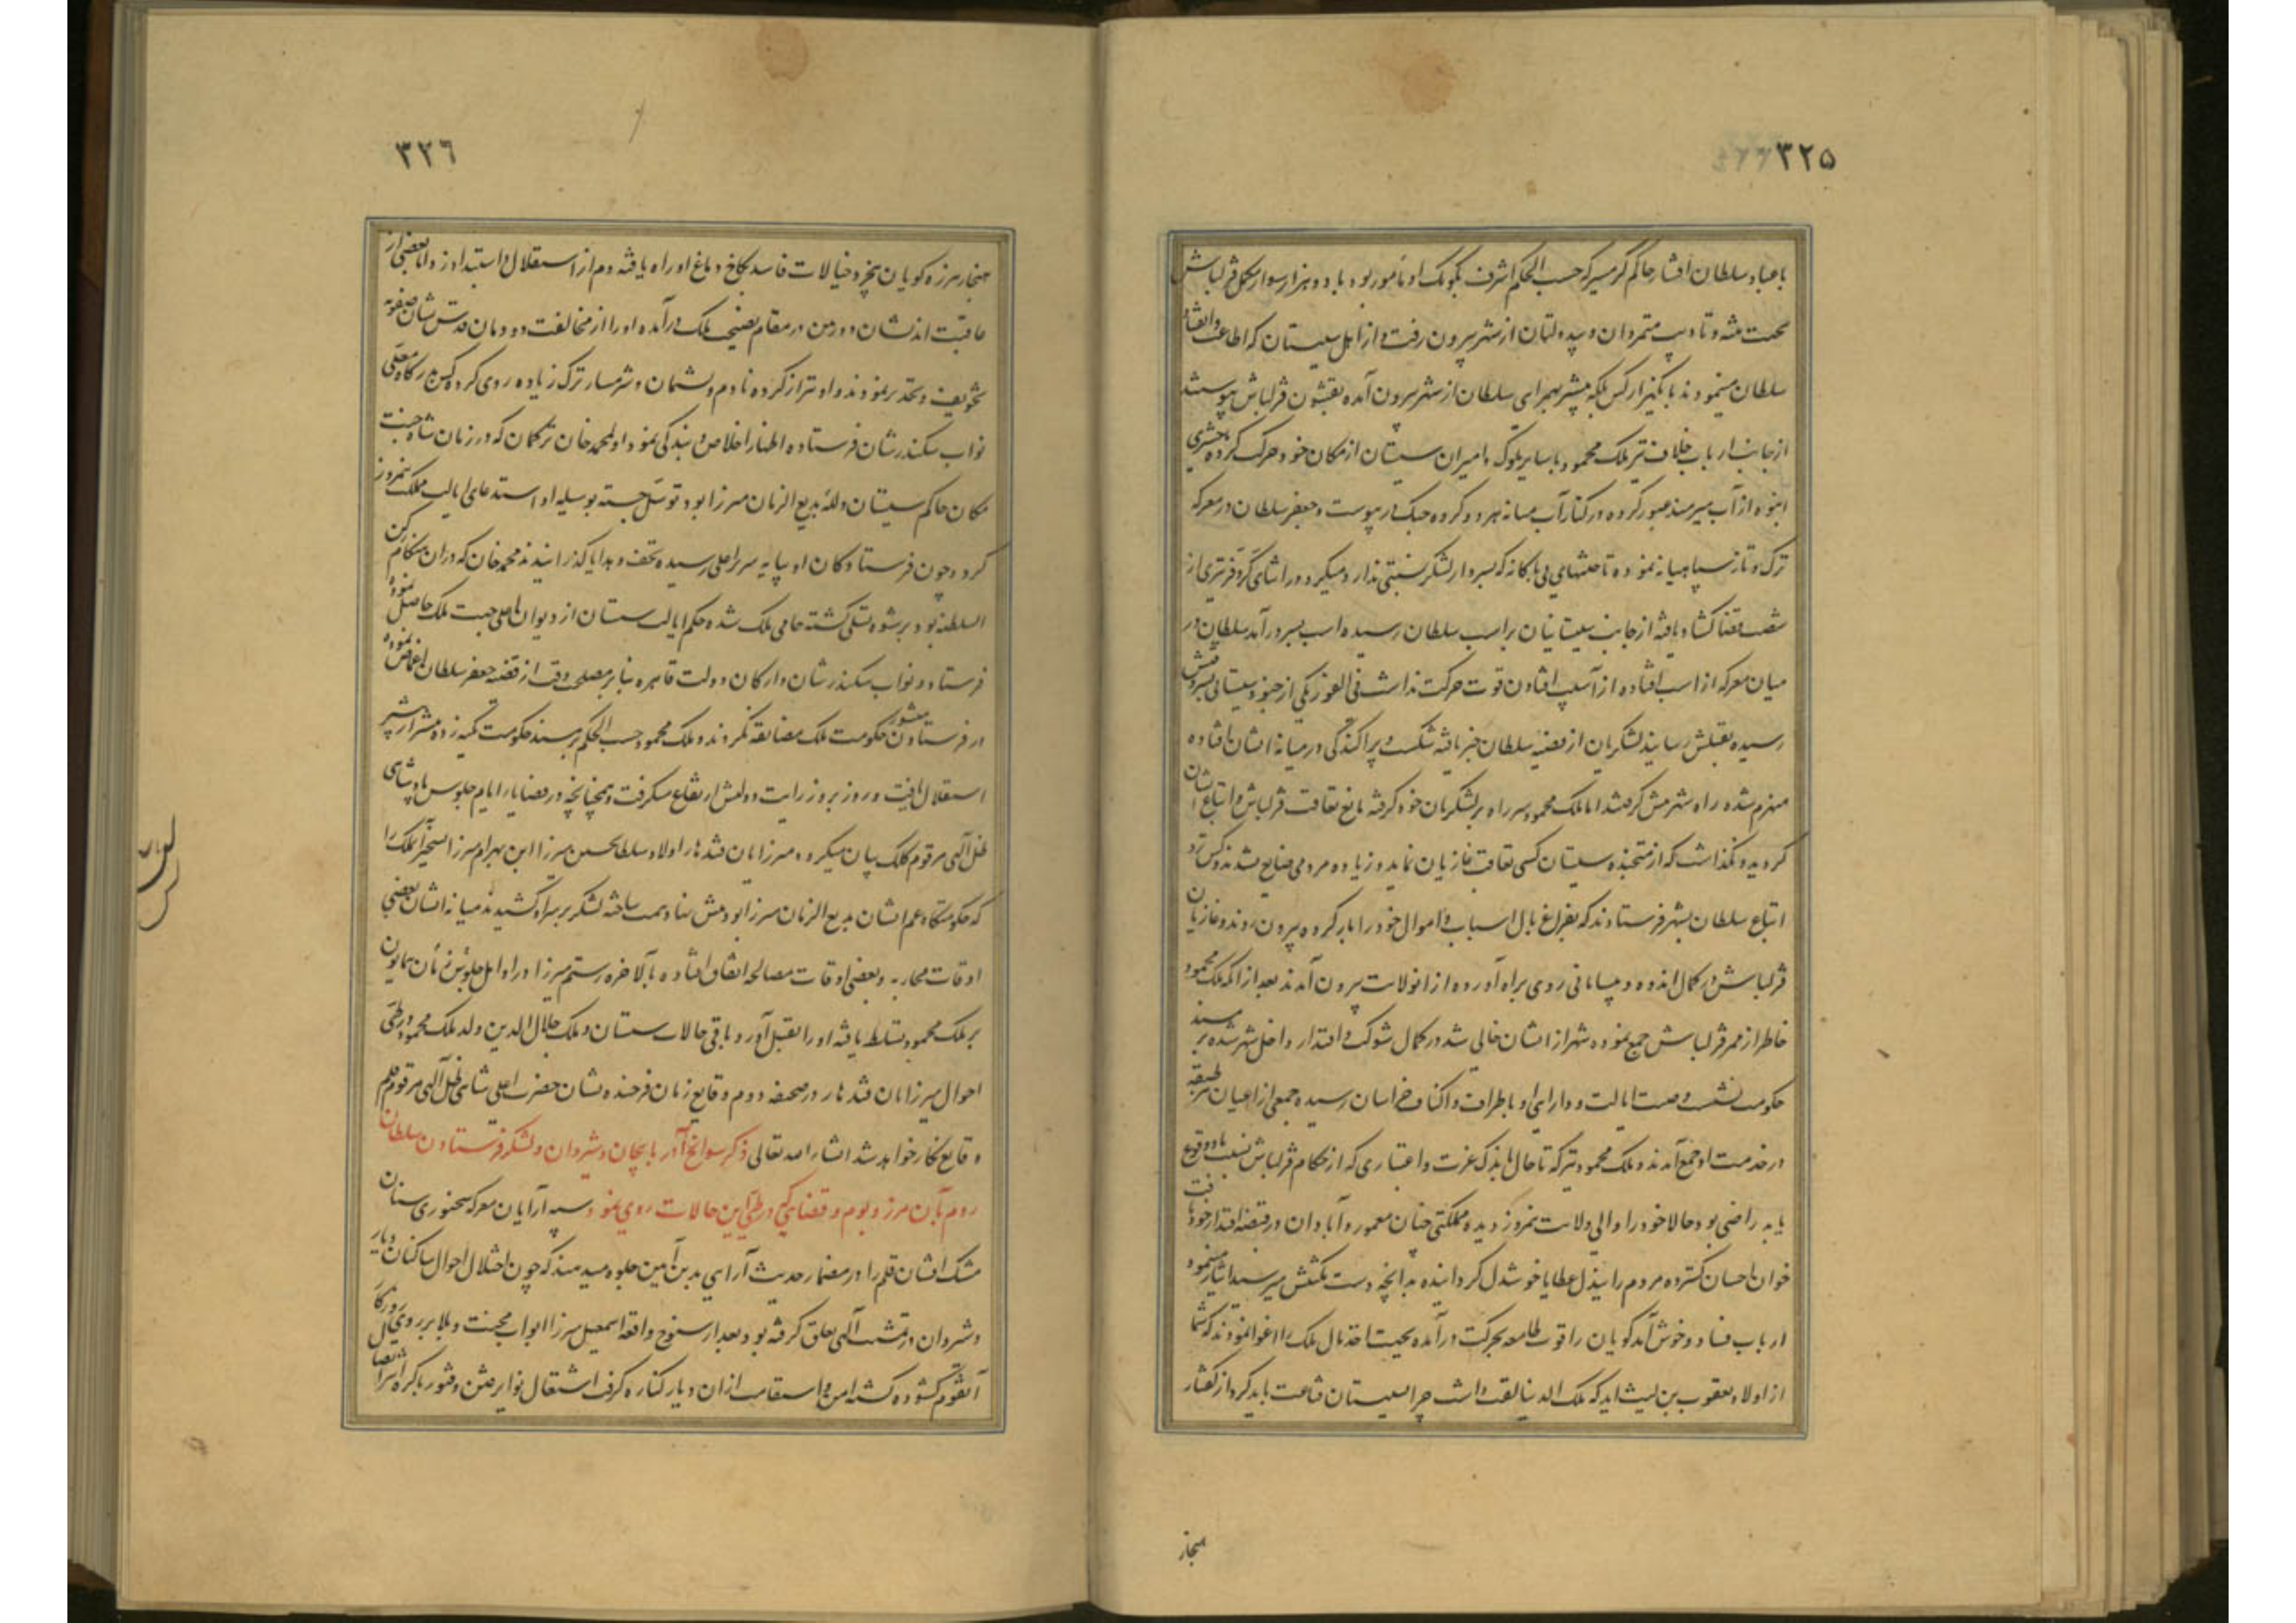 ۳۲۵
با عباد سلطان افشار حاکم گرمسیر که حسب الحکم اشرف بکومک او مأمور بود با دو هزار سوار مکمل قزلباش
متمردان و سیه دلتان از شهر بیرون رفت و از اهل سیستان که اطاعت و انقیاد
سلطان مینمودند با یکهزار کس بلکه بیشتر بهمراهی سلطان از شهر بیرون آمده بقشون قزلباش پیوستند
از جانب ارباب خلاف نیز ملک محمود با سایر ملوک و امیران سیستان از مکان خود حرکت کرده حشری
انبوه از آب هیرمند عبور کرده در کنار آب میانه هر دو گروه جنگ در پیوست و جعفر سلطان در معرکه
ترک و تاز سپاهیانه نموده تاختهای بی باکانه که بسردار لشکر نسبتی ندارد میکرد در اثنای کر و فر تیری از
شست قضا گشاد یافته از جانب سیستانیان بر اسب سلطان رسیده اسب بسر در آمد سلطان در
میان معرکه از اسب افتاده از آسیب افتادن قوت حرکت نداشت فی الفور یکی از جنود سیستانی بسروقتش
رسیده بقتلش رسانید لشکریان از قضیه سلطان خبر یافته شکست و پراکندگی در میانه ایشان افتاده
منهزم شده راه شهر پیش گرفتند اما ملک محمود سر راه بر لشکریان خود گرفته مانع تعاقب قزلباش و اتباع ایشان
گردید و نگذاشت که از متجنده سیستان کسی تعاقب غازیان نماید و زیاده مردمی ضایع نشدند و کس نزد
اتباع سلطان بشهر فرستادند که بفراغ بال اسباب و اموال خود را بار کرده بیرون روند و غازیان
قزلباش در کمال اندوه و پریشانی روی براه آورده از انولایت بیرون آمدند بعد از آنکه ملک محمود
خاطر از ممر قزلباش جمع نموده شهر از ایشان خالی شد در کمال شوکت و اقتدار داخل شهر شده بر مسند
حکومت نشست و صیت ایالت و دارایی او باطراف و اکناف خراسان رسیده جمعی از اعیان هر طبقه
در خدمت او جمع آمدند و ملک محمود نیز که تا حال باندک عزت و اعتباری که از حکام قزلباش نسبت باو وقوع
یابد راضی بود حالا خود را والی ولایت نیمروز دیده مملکتی چنان معمور و آبادان در قبضه اقتدار خود یافت
خوان احسان گسترده مردم را ببذل عطایا خوشدل گردانیده بدانچه دست مکنتش میرسید ایثار مینمود
ارباب فساد و خوش آمد گویان را قوت طامعه بحرکت در آمده بجهت اخذ مال ملک را اغوا نمودند که شما
از اولاد یعقوب بن لیث اید که ملک الدنیا لقب داشت چرا بسیستان قناعت باید کرد از گفتار
هنجار
۳۲٦
هنجار هرزه گویان بیخرد خیالات فاسد بکاخ دماغ او راه یافته دم از استقلال و استبداد زد اما بعضی از
عاقبت اندیشان دوربین در مقام نصیحت ملک در آمده او را از مخالفت دودمان قدس نشان صفویه
تخویف و تحذیر نمودند و او نیز از کرده نادم و پشیمان و شرمسار ترک زیاده روی کرده کس بدرگاه معلی
نواب سکندر شان فرستاده اظهار اخلاص و بندگی نمود و اولا بمحمد خان ترکمان که در زمان شاه جنت
مکان حاکم سیستان و لله بدیع الزمان میرزا بود توسل جسته بوسیله او استدعای ایالت مملکت نیمروز
کرد و چون فرستادگان او بپایه سریر اعلی رسیده تحف و هدایا گذرانیدند محمد خان که در ان هنگام رکن
السلطنه بود برشوه تسلی گشته حامی ملک شده حکم ایالت سیستان از دیوان اعلی جهت ملک حاصل نموده
فرستاد و نواب سکندر شان و ارکان دولت قاهره بنا بر مصلحت وقت از قضیه جعفر سلطان اغماض نموده
در فرستادن منشور حکومت ملک مضایقه نکردند و ملک محمود حسب الحکم بر مسند حکومت تکیه زده بیشتر از پیشتر
استقلال یافت و روز بروز رایت دولتش ارتفاع میگرفت و همچنانچه در قضایای ایام جلوس پادشاهی
ظل آلهی مرقوم کلک بیان میگردد میرزایان قندهار اولاد سلطان حسین میرزا ابن بهرام میرزا تسخیر آن ملک را
که حکومتگاه عم ایشان بدیع الزمان میرزا بود پیش نهاد همت ساخته لشکر بر سر او کشیدند میانه ایشان بعضی
اوقات محاربه و بعضی اوقات مصالحه اتفاق افتاده بالاخره رستم میرزا در اوایل جلوس زمان همایون
بر ملک محمود تسلط یافته او را بقتل آورد و باقی حالات سیستان و ملک جلال الدین ولد ملک محمود در طی
احوال میرزایان قندهار در صحیفه دوم وقایع زمان فرخنده نشان حضرت اعلی شاهی ظل آلهی مرقوم قلم
وقایع نگار خواهد شد انشاء الله تعالی ذکر سوانح آذربایجان و شیروان و لشکر فرستادن سلطان
روم بآن مرز و بوم و قضایایی که در طی این حالات روی نمود سپه آرایان معرکه سخنوری سنان
مشک افشان قلم را در مضمار حدیث آرایی بدین آیین جلوه میدهند که چون اختلال احوال ساکنان دیار
و شروان در مشیت آلهی تعلق گرفته بود بعد از سنوح واقعه اسمعیل میرزا ابواب محنت و بلا بر روی روزگار
آنقوم گشوده گشته امن و استقامت از ان دیار کناره گرفت اشتعال نوایر فتن و فتور